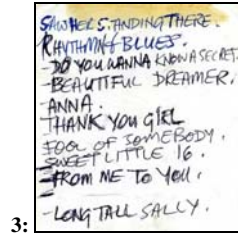 SAW HER STANDING THERE.
RHYTHMN & BLUES.
- DO YOU WANNA KNOW A SECRET.
- BEAUTIFUL DREAMER.
- ANNA.
THANK YOU GIRL
FOOL OF SOMEBODY.
SWEET LITTLE 16.
- FROM ME TO YOU.
- LONG TALL SALLY.
3: